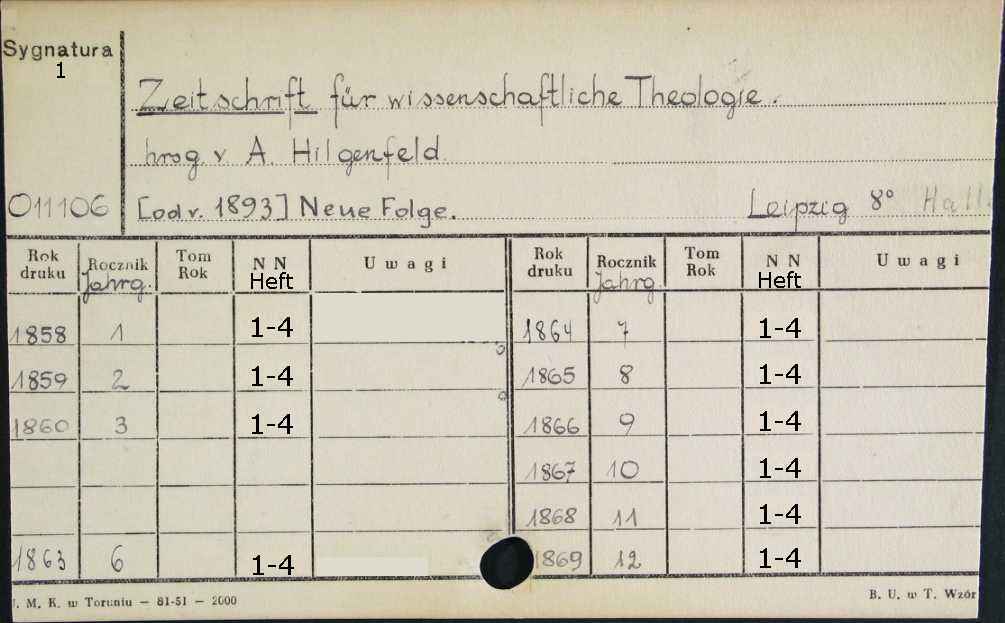 Sygnatura
1
Zeitschrift für wissenschaftliche Theologie.
hrsg. v A. Hilgenfeld
011106 [od r. 1893] Neue Folge. Leipzig 8° Hall
Rok druku Rocznik Jahrg. Tom Rok N N Heft Uwagi Rok druku Rocznik Jahrg. Tom Rok N N Heft Uwagi
1858 1 1-4 1864 7 1-4
1859 2 1-4 1865 8 1-4
1860 3 1-4 1866 9 1-4
1867 10 1-4
1868 11 1-4
1863 6 1-4 1869 12 1-4
. M. K. w Toruniu – 81-51 – 2000 B. U. w T. Wzór